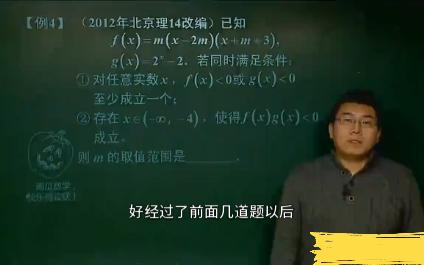 【例4】(2012年北京理14改编)已知
f(x)=m(x-2m)(x+m+3),
g(x)=2ˣ-2. 若同时满足条件:
①对任意实数x, f(x)<0或g(x)<0
至少成立一个;
②存在x∈(-∞, -4), 使得f(x)g(x)<0
成立。
则m的取值范围是______.
南瓜数学,
快乐得高球!
好经过了前面几道题以后